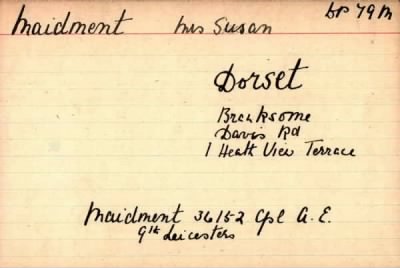 DP 79 M
Maidment Mrs Susan
Dorset
Branksome
Davis Rd
1 Heath View Terrace
Maidment 36152 Cpl A. E.
9th Leicesters